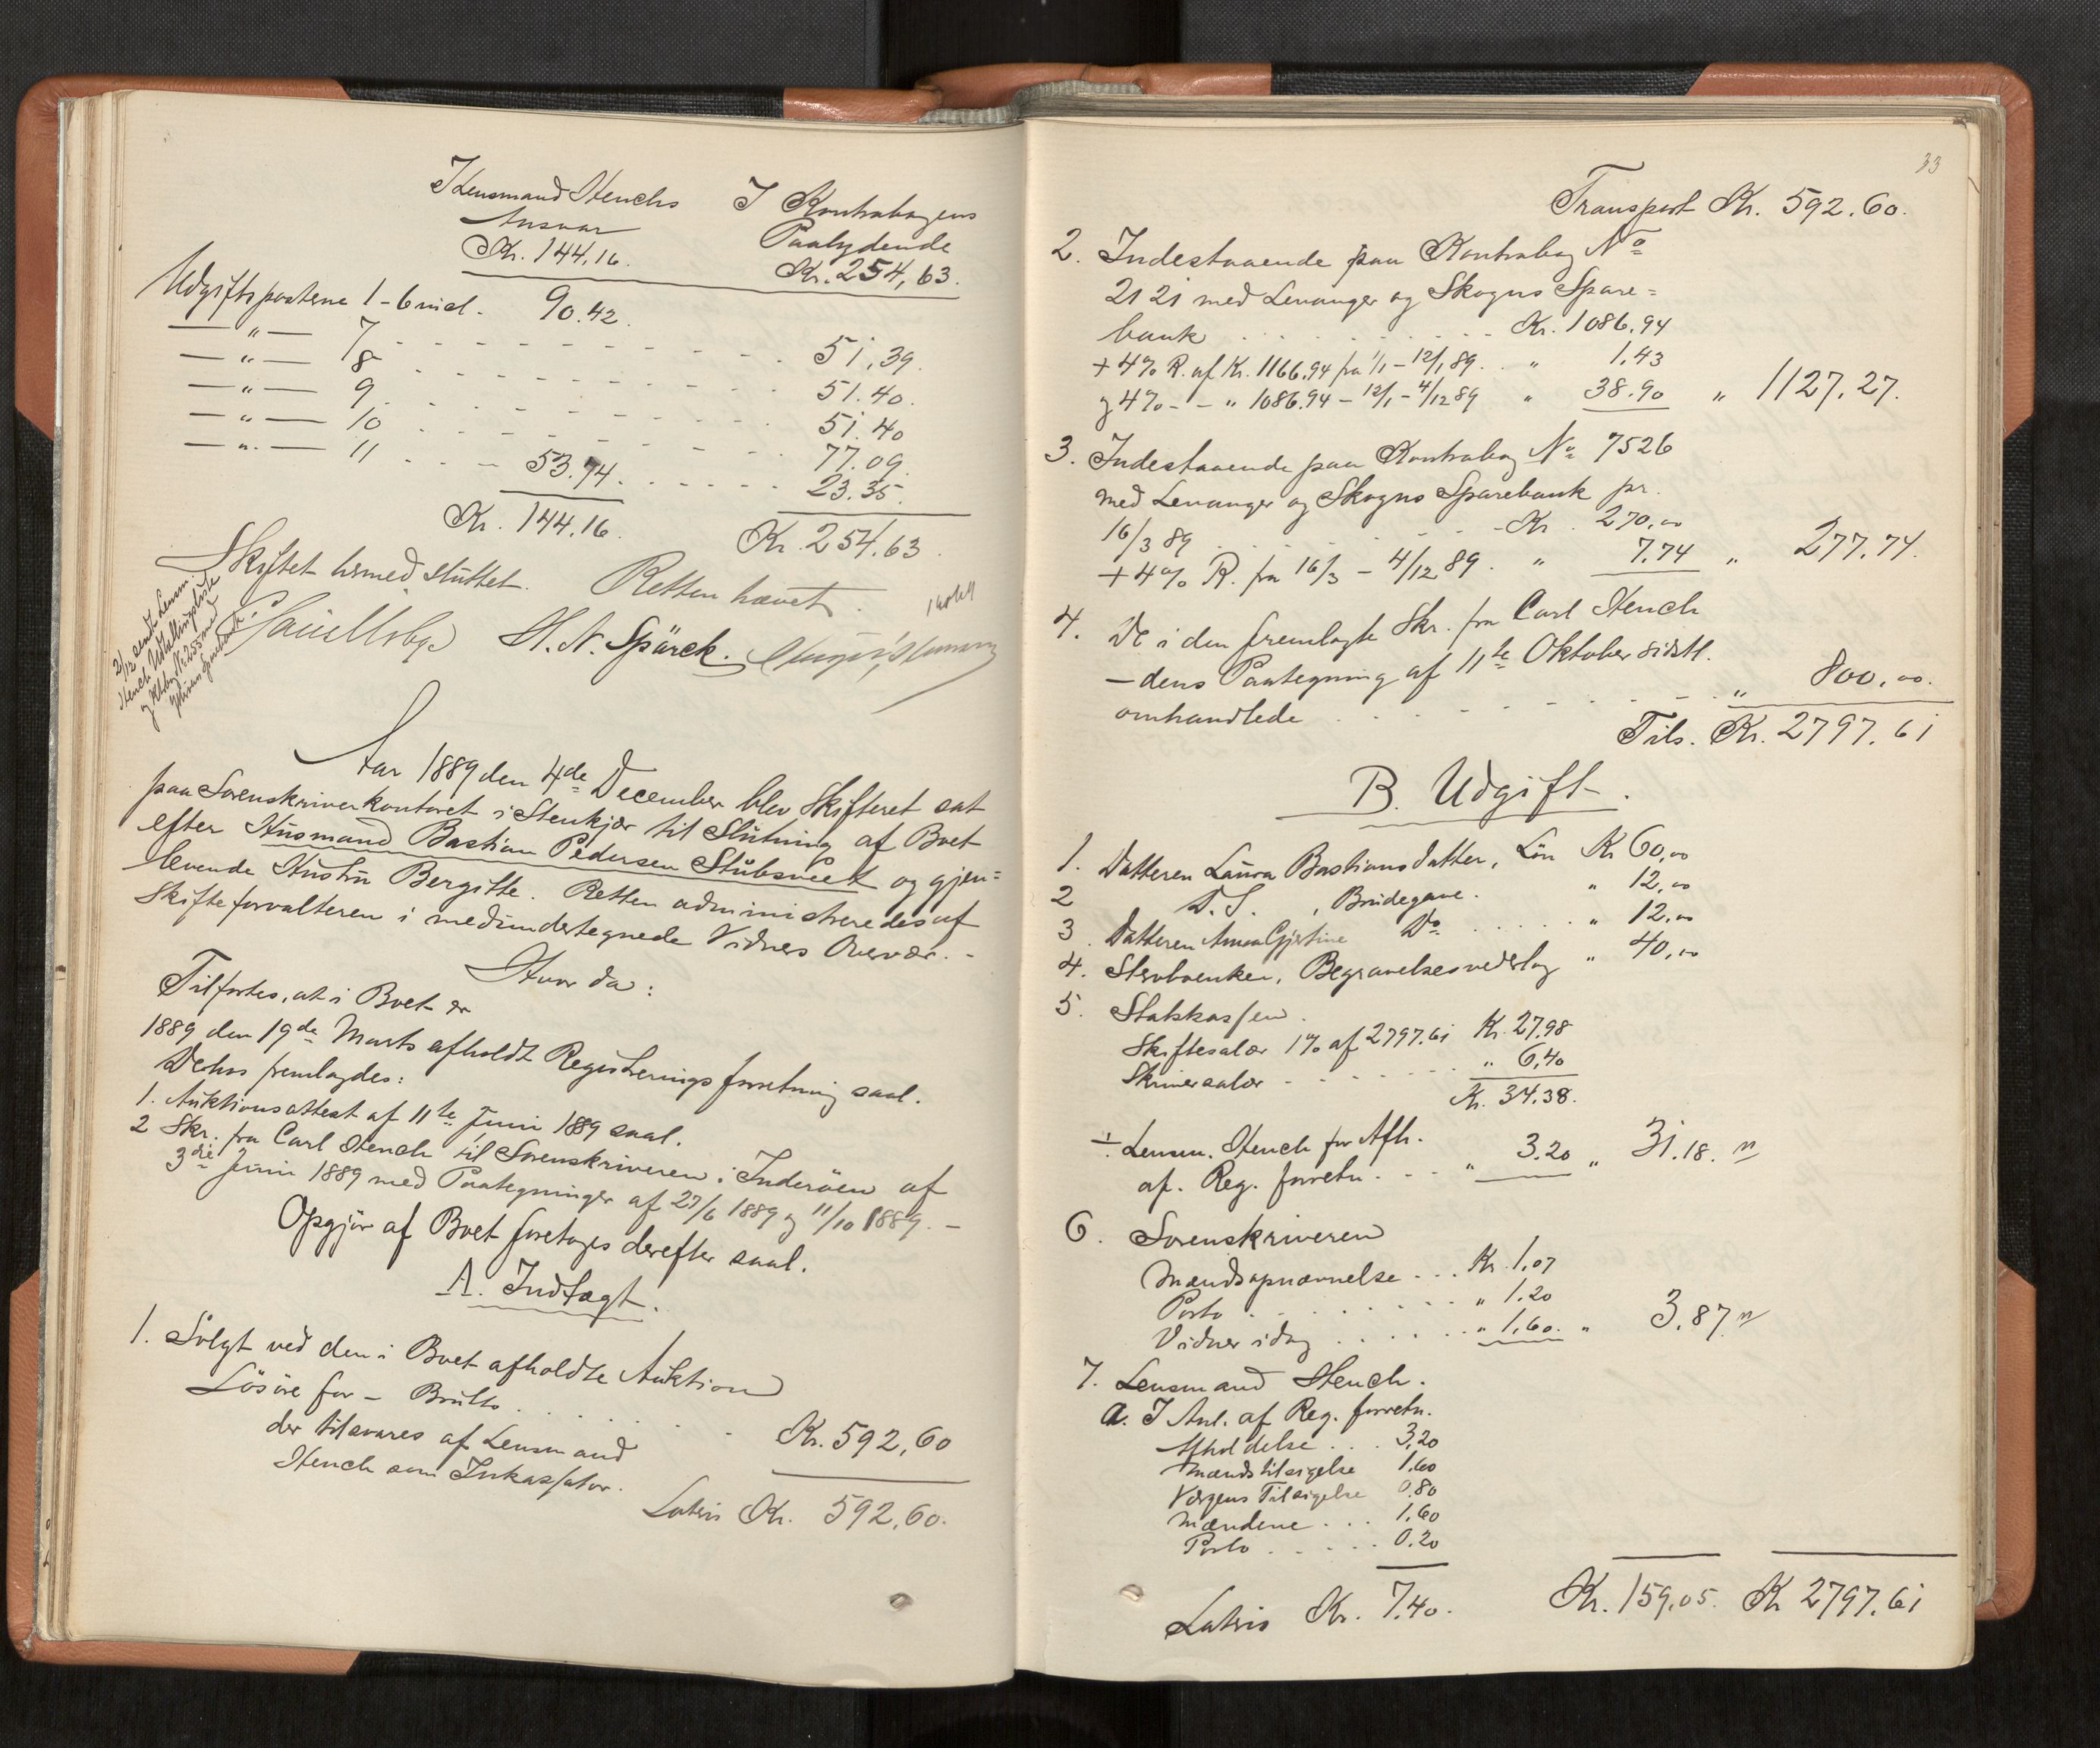 I Lensmand Henchs
Ansvar
Kr. 144.16.
I Kontrabogens
Paalydende
Kr. 254,63.
Udgiftsposterne 1-6 incl. 90.42.
—"— 7 - - - - 51,39.
—"— 8 - - - - 51.40.
—"— 9 - - - - 51.40
—"— 10 - - - - 77.09.
—"— 11 - - - 53.74. - - - - 23.35.
Kr. 144.16. Kr. 254.63.
Skiftet hermed sluttet. Retten hævet.
2/12 sendt Lensm.
Hench Udstillingsliste
H. N. Spärck.
Aar 1889 den 4de December blev Skifteret sat
paa Sorenskriverkontoret i Stenkjær til Slutning af Boet
efter Husmand Bastian Pedersen Stubsveet og gjen=
levende Hustru Bergitte. Retten administreredes af
Skifteforvalteren i medundertegnede Vidners Overvær. -
Hvor da:
Tilførtes, at i Boet er
1889 den 19de Marts afholdt Registreringsforretning saal.
Derhos fremlagdes:
1. Auktionsattest af 11te Juni 1889 saal.
2 Skr. fra Carl Hench til Sorenskriveren i Inderöen af
3die Juni 1889 med Paategninger af 27/6 1889 og 11/10 1889. -
Opgjör af Boet foretoges derefter saal.
A. Indtægt.
1. Solgt ved den i Boet afholdte Auktion
Lösöre for - Brutto . . . . . Kr. 592,60
der tilsvares af Lensmand
Hench som Inkassator.
Latris Kr. 592,60.
33
Transport Kr. 592.60.
2. Indestaaende paa Kontrabog No
2121 med Levanger og Skogns Spare=
bank . . . . . Kr. 1086.94
+ 4% R. af Kr. 1166.94 fra 1/1 - 12/1 89. . " 1.43
og 4% - - " 1086.94 - 12/1 - 4/12 89 " 38.90 " 1127.27.
3. Indestaaende paa Kontrabog No 7526
med Levanger og Skogns Sparebank pr.
16/3 89 . . . . . Kr. 270,00
+ 4% R. fra 16/3 - 4/12 89. " 7.74 " 277.74.
4. De i den fremlagte Skr. fra Carl Hench
- dens Paategning af 11te Oktober sidstl.
omhandlede . . . . . " 800.00.
Tils. Kr. 2797.61
B. Udgift.
1. Datteren Laura Bastiansdatter, Lön Kr 60,00
2 D.S. , Brudegave. " 12,00
3 Datteren Anna Gjertine Do . . . . " 12,00
4. Stervboenken, Begravelsesvederlag " 40,00
5. Statskassen.
Skiftesalær 1% af 2797.61 Kr. 27.98
Skriversalær - . . . . " 6,40
Kr. 34.38.
÷ Lensm. Hench for Afh.
af. Reg. forretn. - - " 3.20 " 31.18. "
6. Sorenskriveren
Mændsopnævnelse . . . Kr. 1,07
Porto . . . . . " 1.20
Vidner idag . . . . . " 1,60. " 3.87 "
7. Lensmand Hench.
a. I Anl. af Reg. forretn.
Afholdelse . . . 3,20
Mændstilsigelse 1.60
Værgens Tilsigelse 0.80
Mændene . . . 1.60
Porto . . . . . 0.20
Latris Kr. 7.40. Kr. 159,05. Kr 2797.61